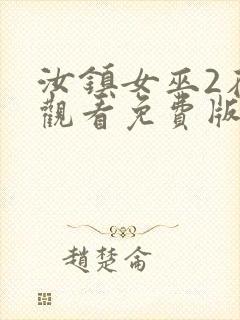 汝鎮女巫2
觀看免費版
趙楚侖